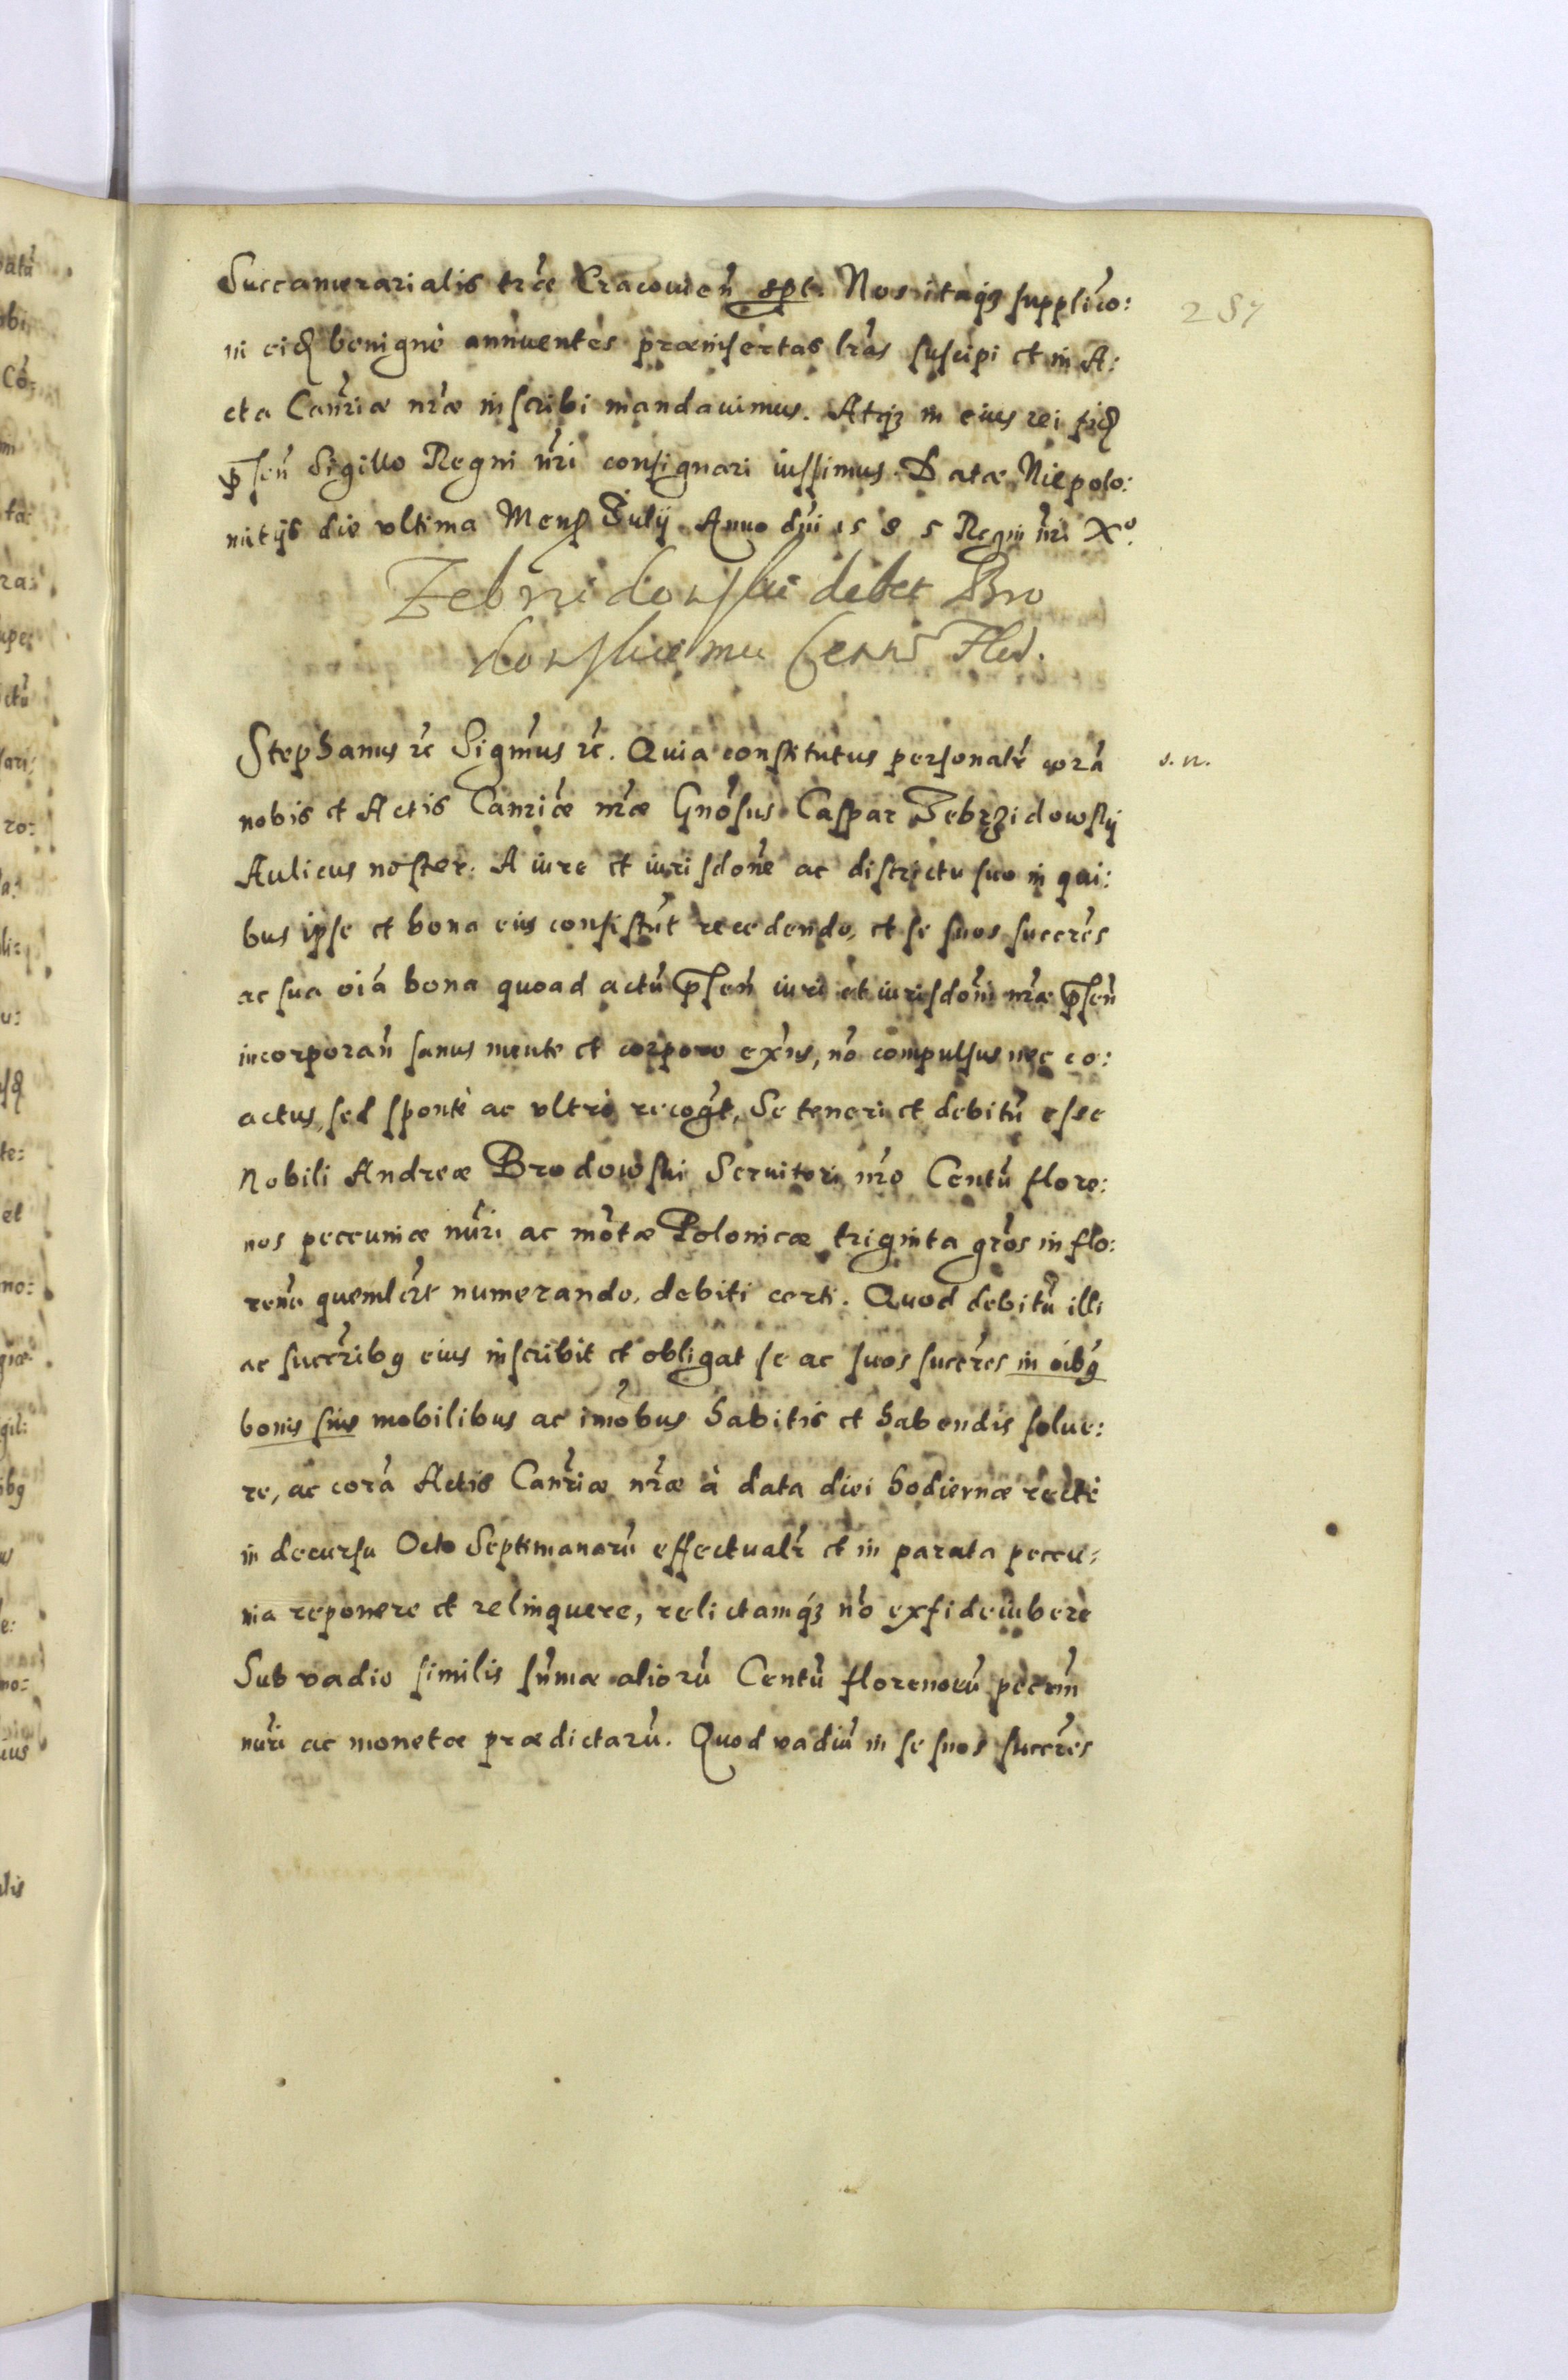 Succamerarialis trae Cracovien̄ spt. Nos itaqȝ supplico:
ni eid benignè annuentes praeinsertas lras suscipi et in A:
cta Canriae nrae inscribi mandavimus. Atqȝ in eius rei fid
pnsen̄ Sigillo Regni nri consignari iussimus. Datae Niepolo:
mitijs die ultima Mens Julij Anno dni 1585 Regni nri X°.
Zebrzidowskie debet Bro
dowskiemu Centū Flor.
Stephanus rc Sigmus rc. Quia constitutus personalr corā
nobis et Actis Canriae nrae Gnosus Caspar Zebrzidowskij
Aulicus noster. A iure et iurisdone ac districtu suo in qui:
bus ipse et bona eius consistūt recedendo, et se suos succres
ac sua oia bona quoad actū pnsen̄ iuri et iurisdoni nrae pnsen̄
incorporan̄ sanus mente et corpore exns, no compulsus nec co:
actus, sed spontè ac ultrò recogt, Se teneri et debitū esse
Nobili Andreae Brodowski Servitori nro Centū flore:
nos peccuniae nūri ac motae Polonicae triginta gros in flo:
renū quemlēt numerando, debiti certi. Quod debitū illi
ac succribꝰ eius inscribit et obligat se ac suos succres in oibꝰ
bonis suis mobilibus ac imobus habitis et habendis solue:
re, ac corā Actis Canriae nrae à data diei hodiernae rectè
in decursu Octo Septimanarū effectualr et in parata peccu:
nia reponere et relinquere, relictamqȝ no exfideiubere
Sub vadio similis sūmae aliorū Centū florenorū peccun̄
nūri ac monetae praedictarū. Quod vadiū in se suos succres
287
s. n.